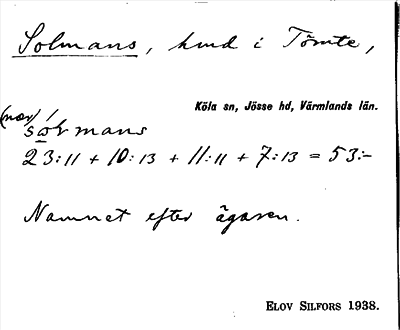 Solmans, hmd i Tömte,
Köla sn, Jösse hd, Värmlands län.
(nov)
sol mans
23:11 + 10:13 + 11:11 + 7:13 = 53:-
Namnet efter ägaren.
ELOV SILFORS 1938.